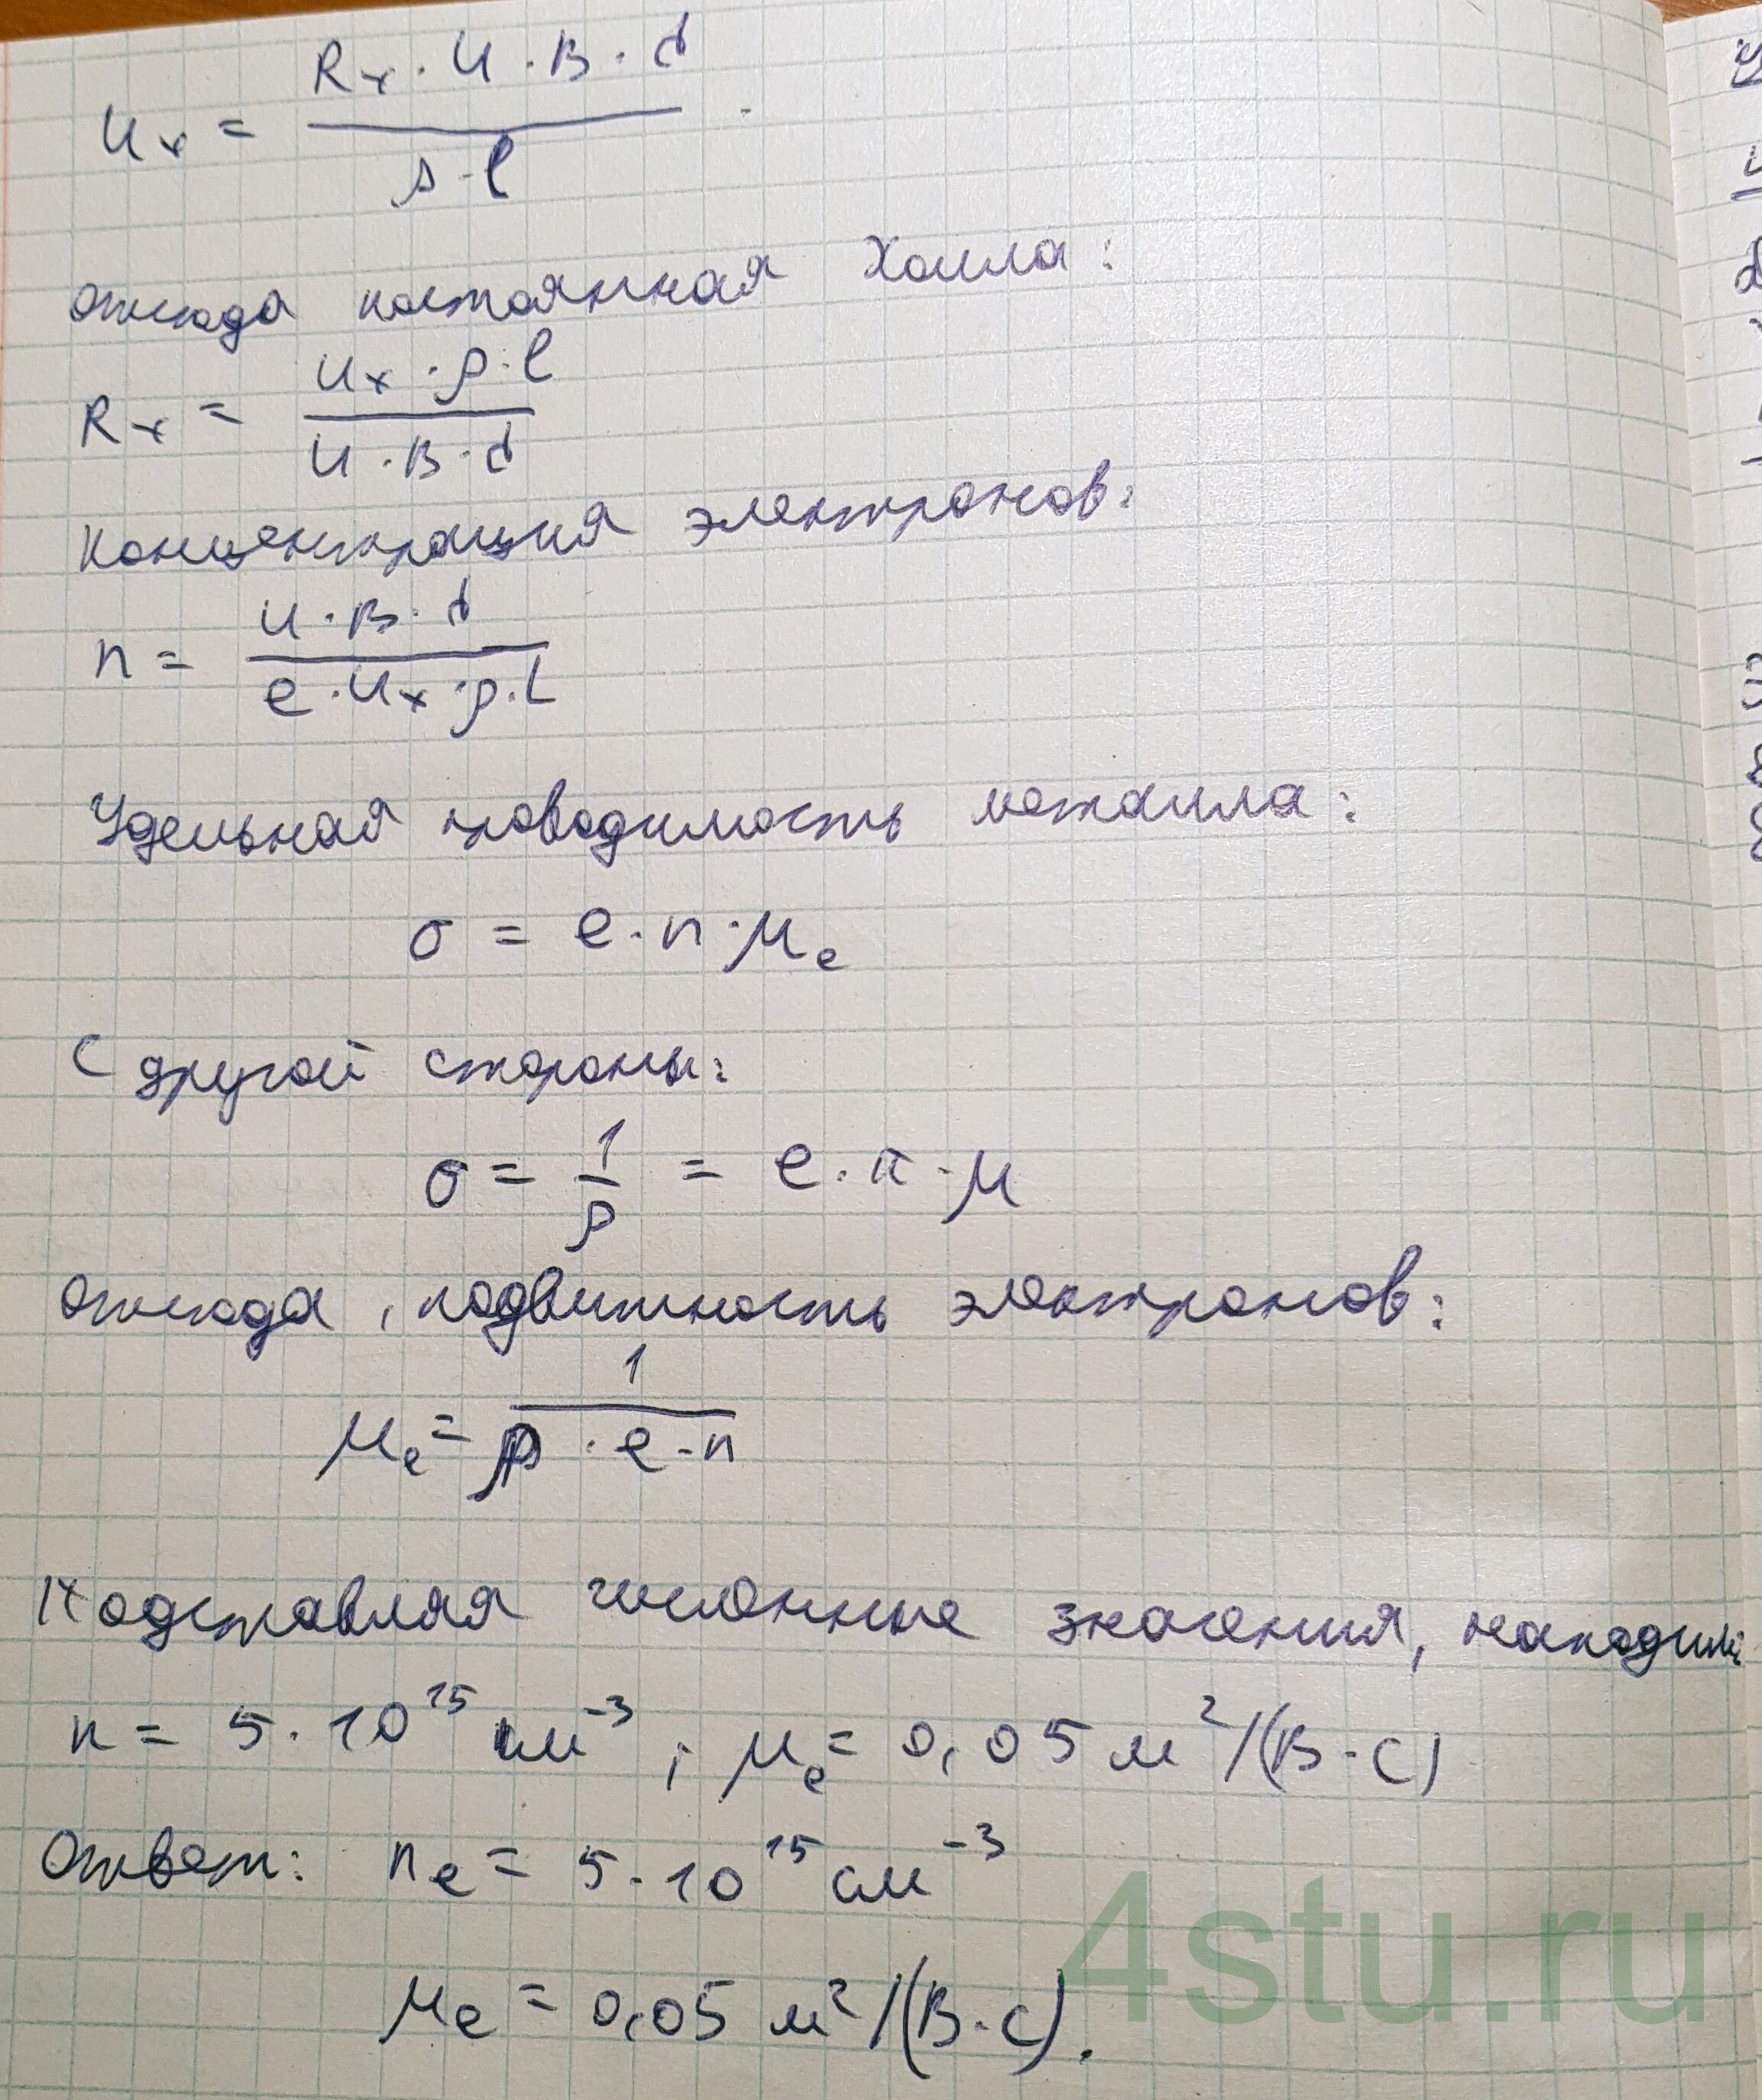 Uₓ = (Rₓ · U · B · d) / (ρ · l)
откуда постоянная Холла:
Rₓ = (Uₓ · ρ · l) / (U · B · d)
Концентрация электронов:
n = (U · B · d) / (e · Uₓ · ρ · L)
Удельная проводимость металла:
σ = e · n · μₑ
С другой стороны:
σ = 1/ρ = e · n · μ
откуда, подвижность электронов:
μₑ = 1 / (ρ · e · n)
Подставляя численные значения, находим:
n = 5 · 10¹⁵ см⁻³ ; μₑ = 0,05 м²/(В · с)
Ответ: nₑ = 5 · 10¹⁵ см⁻³
μₑ = 0,05 м²/(В · с).
4stu.ru